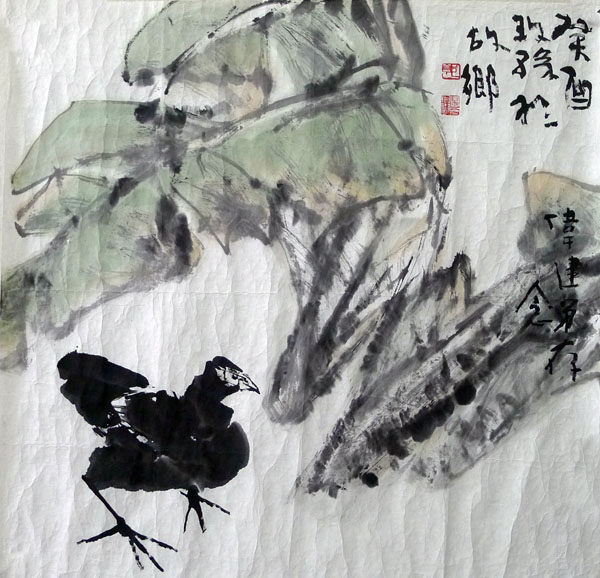 癸酉
於
故鄉
偉建弟存
念